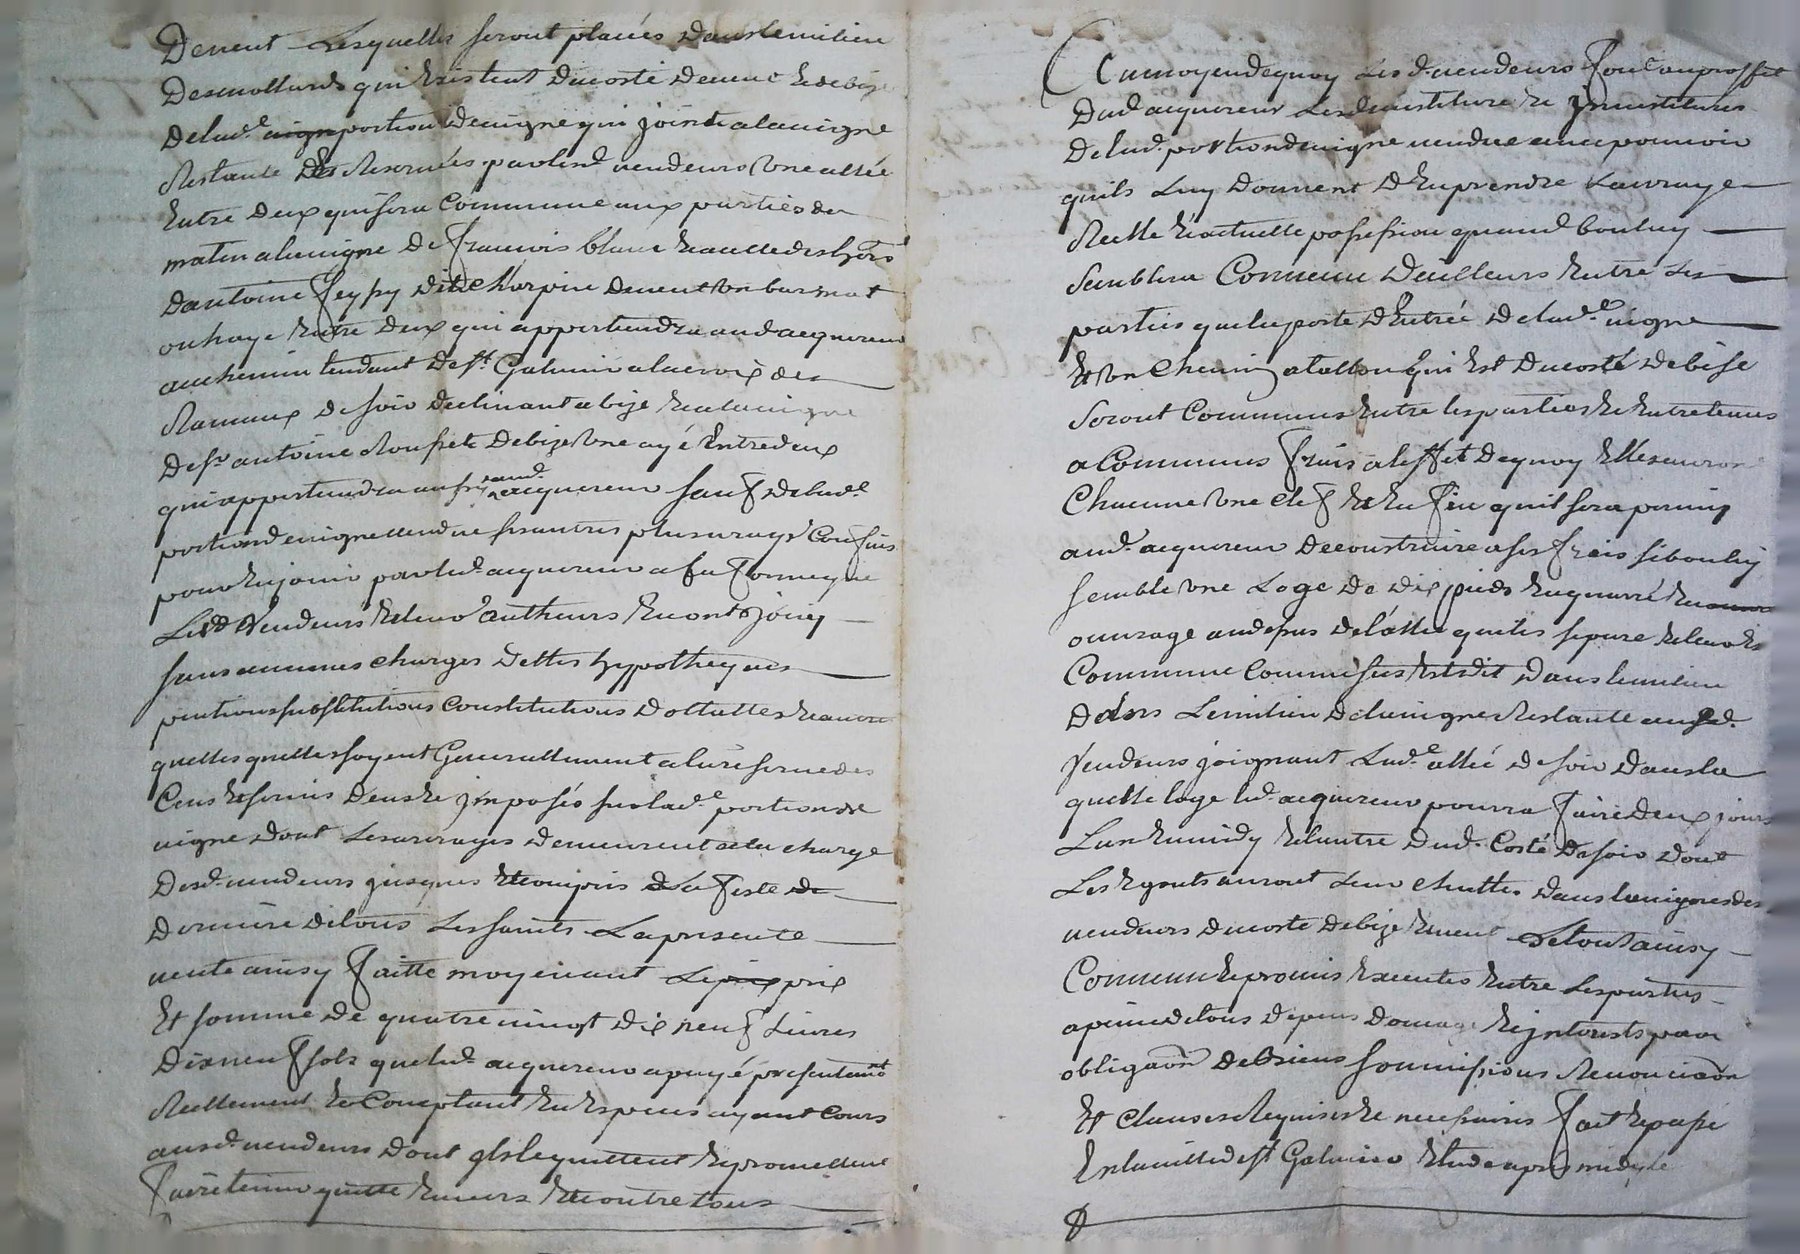 De vent Lesquelles seront placées dans le milieu
Des mollards qui Existent du costé de vent Et de bize
De lad.e portion de vigne qui joint a la vigne
Restante Reservées par lesd vendeurs Une allée
Entre deux qui sera Commune aux parties de
matin a la vigne de francois blanc Et a celle des hoirs
D'antoine feypy dit Charpin de vent Un
ou haye Entre deux qui appartiendra aud acquereur
au chemin tendant de st. Galmier a la croix des
Rameaux de soir declinant a bize Et a la vigne
De sr antoine Rousset de bize Une ayé Entre deux
qui appartiendra aud. acquereur sauf de lad.e
portion de vigne vendue ses autres plus vrays Confins
pour En jouir par led. acquereur a sa forme que
Lesd Vendeurs Et leurs autheurs En ont jouy
sans aucunes charges dettes hypotheques
pentions substitutions Constitutions dottalles Et autres
quelles quelles soyent Generallement a la reserve des
Cens Et servis deus Et jmposés sur lad.e portion de
vigne dont Les arrerages demeurent a la charge
Desd. vendeurs jusques Et compris La feste
Derniere de tous Les saints La presente
vente ainsy faitte moyenant prix
Et somme de quatre vingt dix neuf Livres
Dix neuf sols que led. acquereur a payé presentemt
Reellement Et Comptant En Especes ayant Cours
ausd. vendeurs dont jls le quittent Et promettent
faire tenir quitte Envers Et contre tous
Au moyen de quoy Les d. vendeurs font au proffit
Dud acquereur Les devestiture Et jnvestitures
De lad. portion de vigne vendue avec pouvoir
quils Luy donnent d'En prendre La vraye
Reelle Et actuelle possession quand bon luy
semblera Convenu d'ailleurs Entre Les
parties que la porte d'Entrée de lad.e vigne
Et Un Chemin a tallon qui Est du costé de bise
seront Communs Entre les parties Et Entretenus
a Communs frais a l'effet de quoy Elles auront
Chacune Une Clef Et En fin qu'il sera permis
aud. acquereur de construire a ses frais si bon luy
semble Une Loge de dix pieds En quarré En
ouvrage au depus de l'allée qui les separe Et leur Est
Commune Comme sus Est dit dans le milieu
Le milieu de la vigne Restante ausd.
Vendeurs joignant Lad.e allée de soir dans la
quelle loge led. acquereur pourra faire deux jours
L'un En midy Et l'autre dud. Costé de soir dont
Les Egouts auront Leur chuttes dans la vigne des
vendeurs du costé de bize Et vent Le tout ainsy
Convenu Et promis Executer Entre Les parties
a peine de tous depens domage Et jnterests par
obligaõn de biens soumissions Renonciaõn
Et clauses Requises Et necessaires fait Et passé
En la ville de st Galmier Etude apres midy le